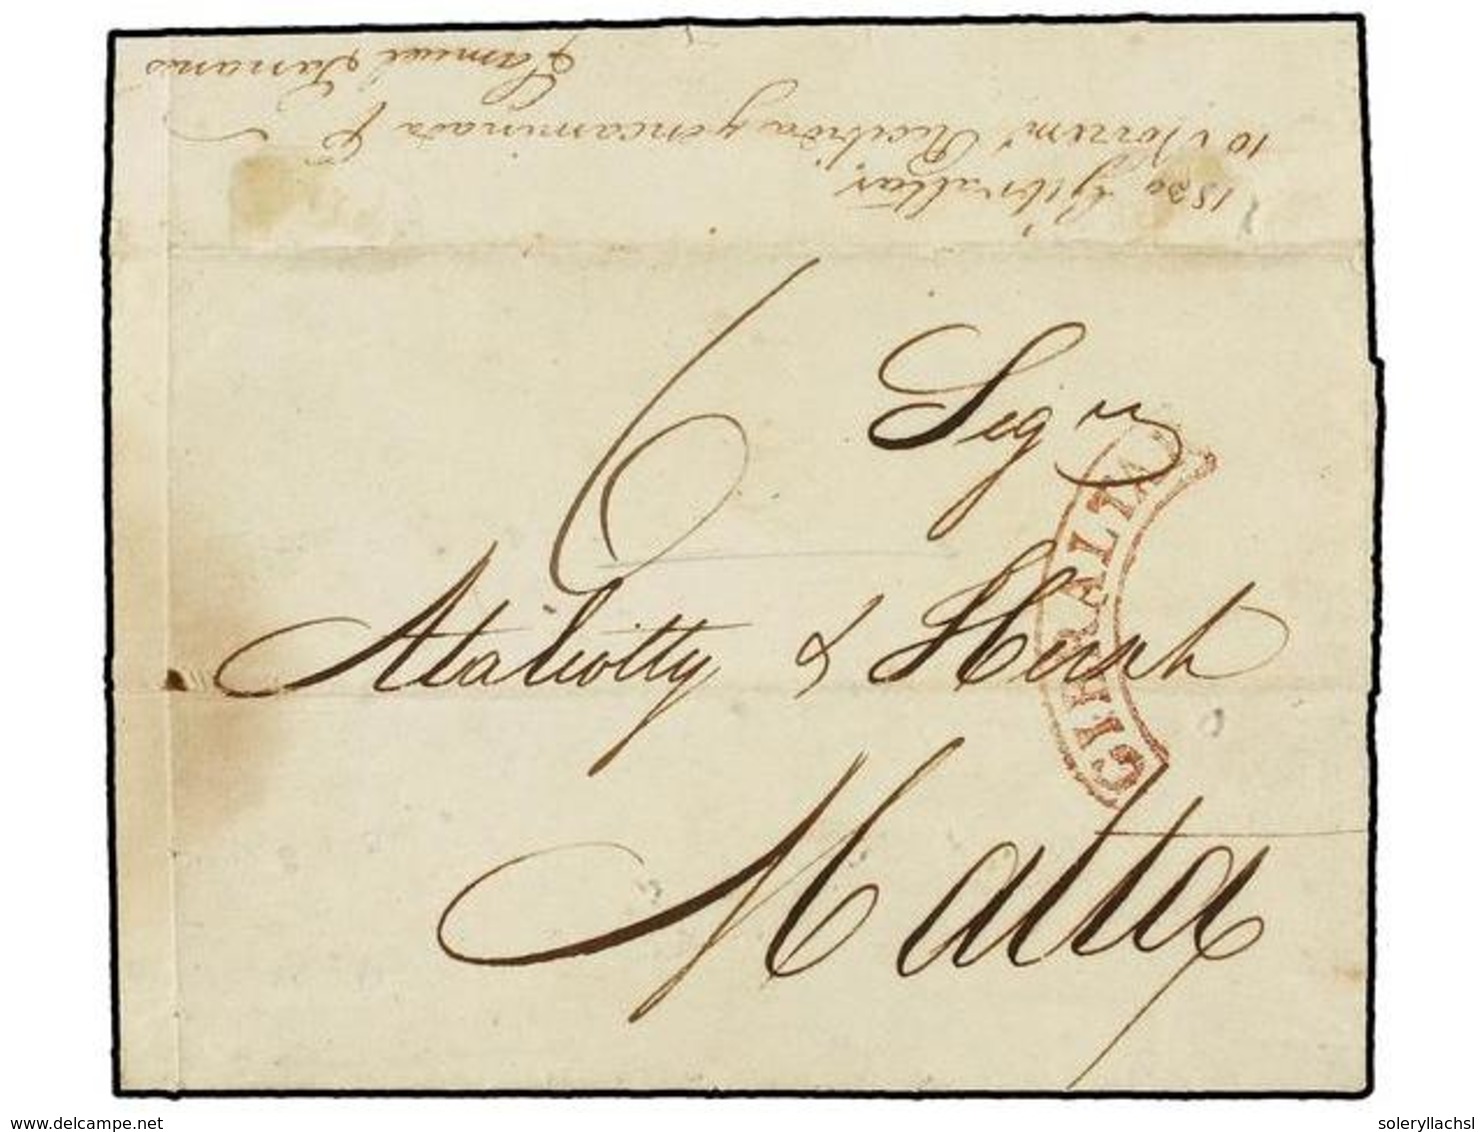 1830 Gibraltar
10 Novem' Recibida y encaminada p
Samuel
6
Sign
Ataliotty & Hirsch
Malta
GIBRALTAR
www.delcampe.net
soleryllachsl